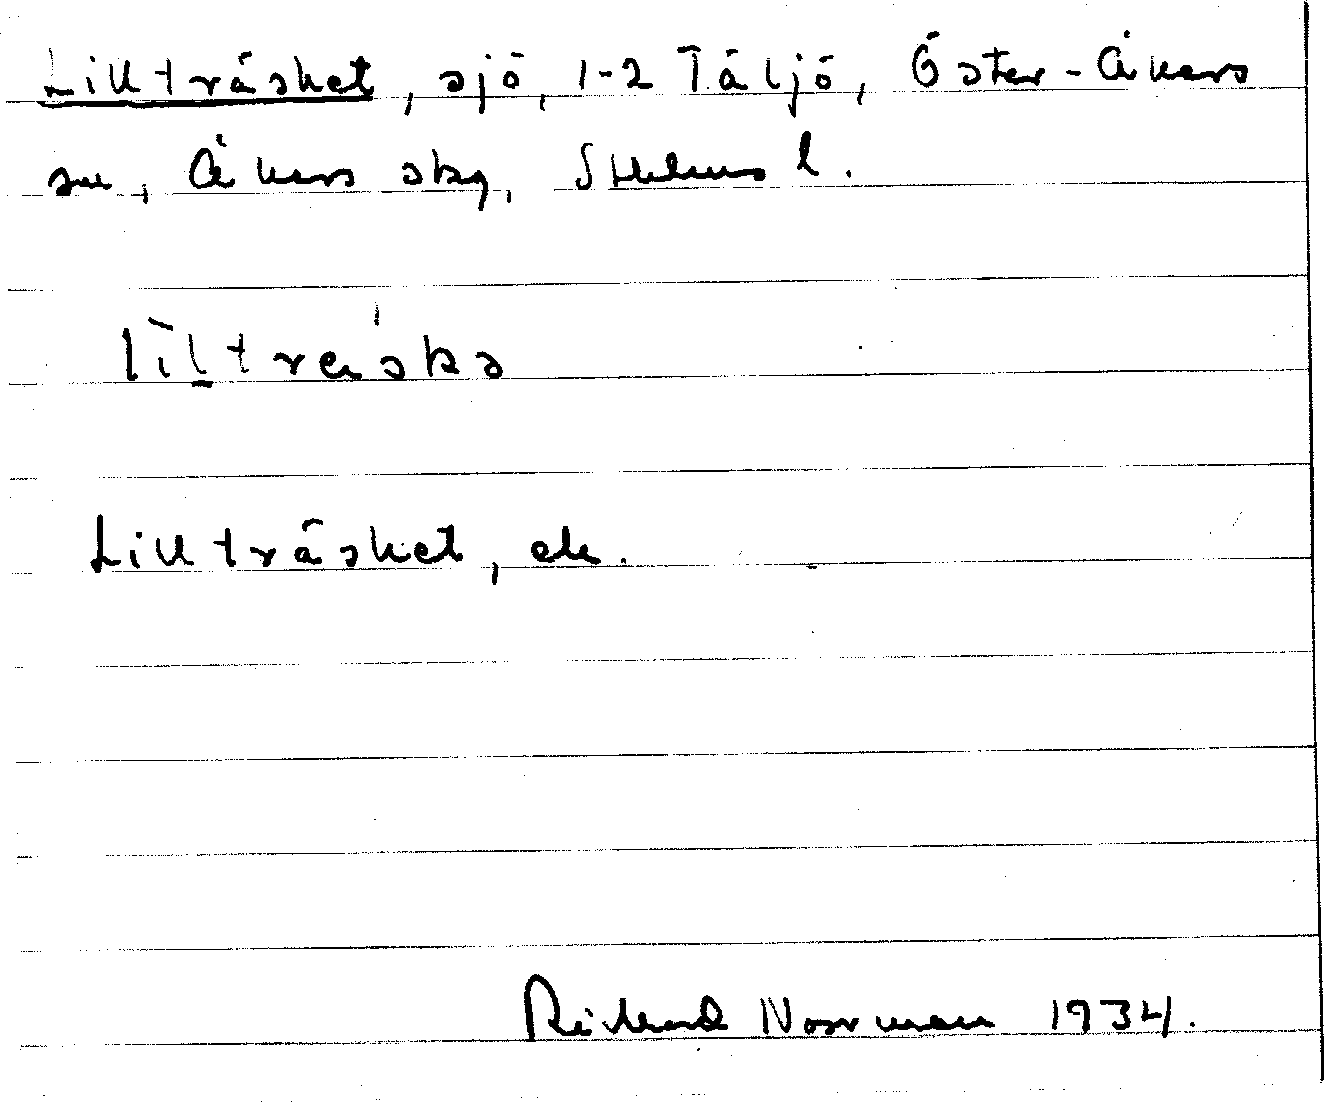 Lillträsket, sjö, 1-2 Täljö, Öster-Åkers
sn, Åkers skg, Sthlms l.
liltreska
Lillträsket, ek.
Rickard Norrman 1934.